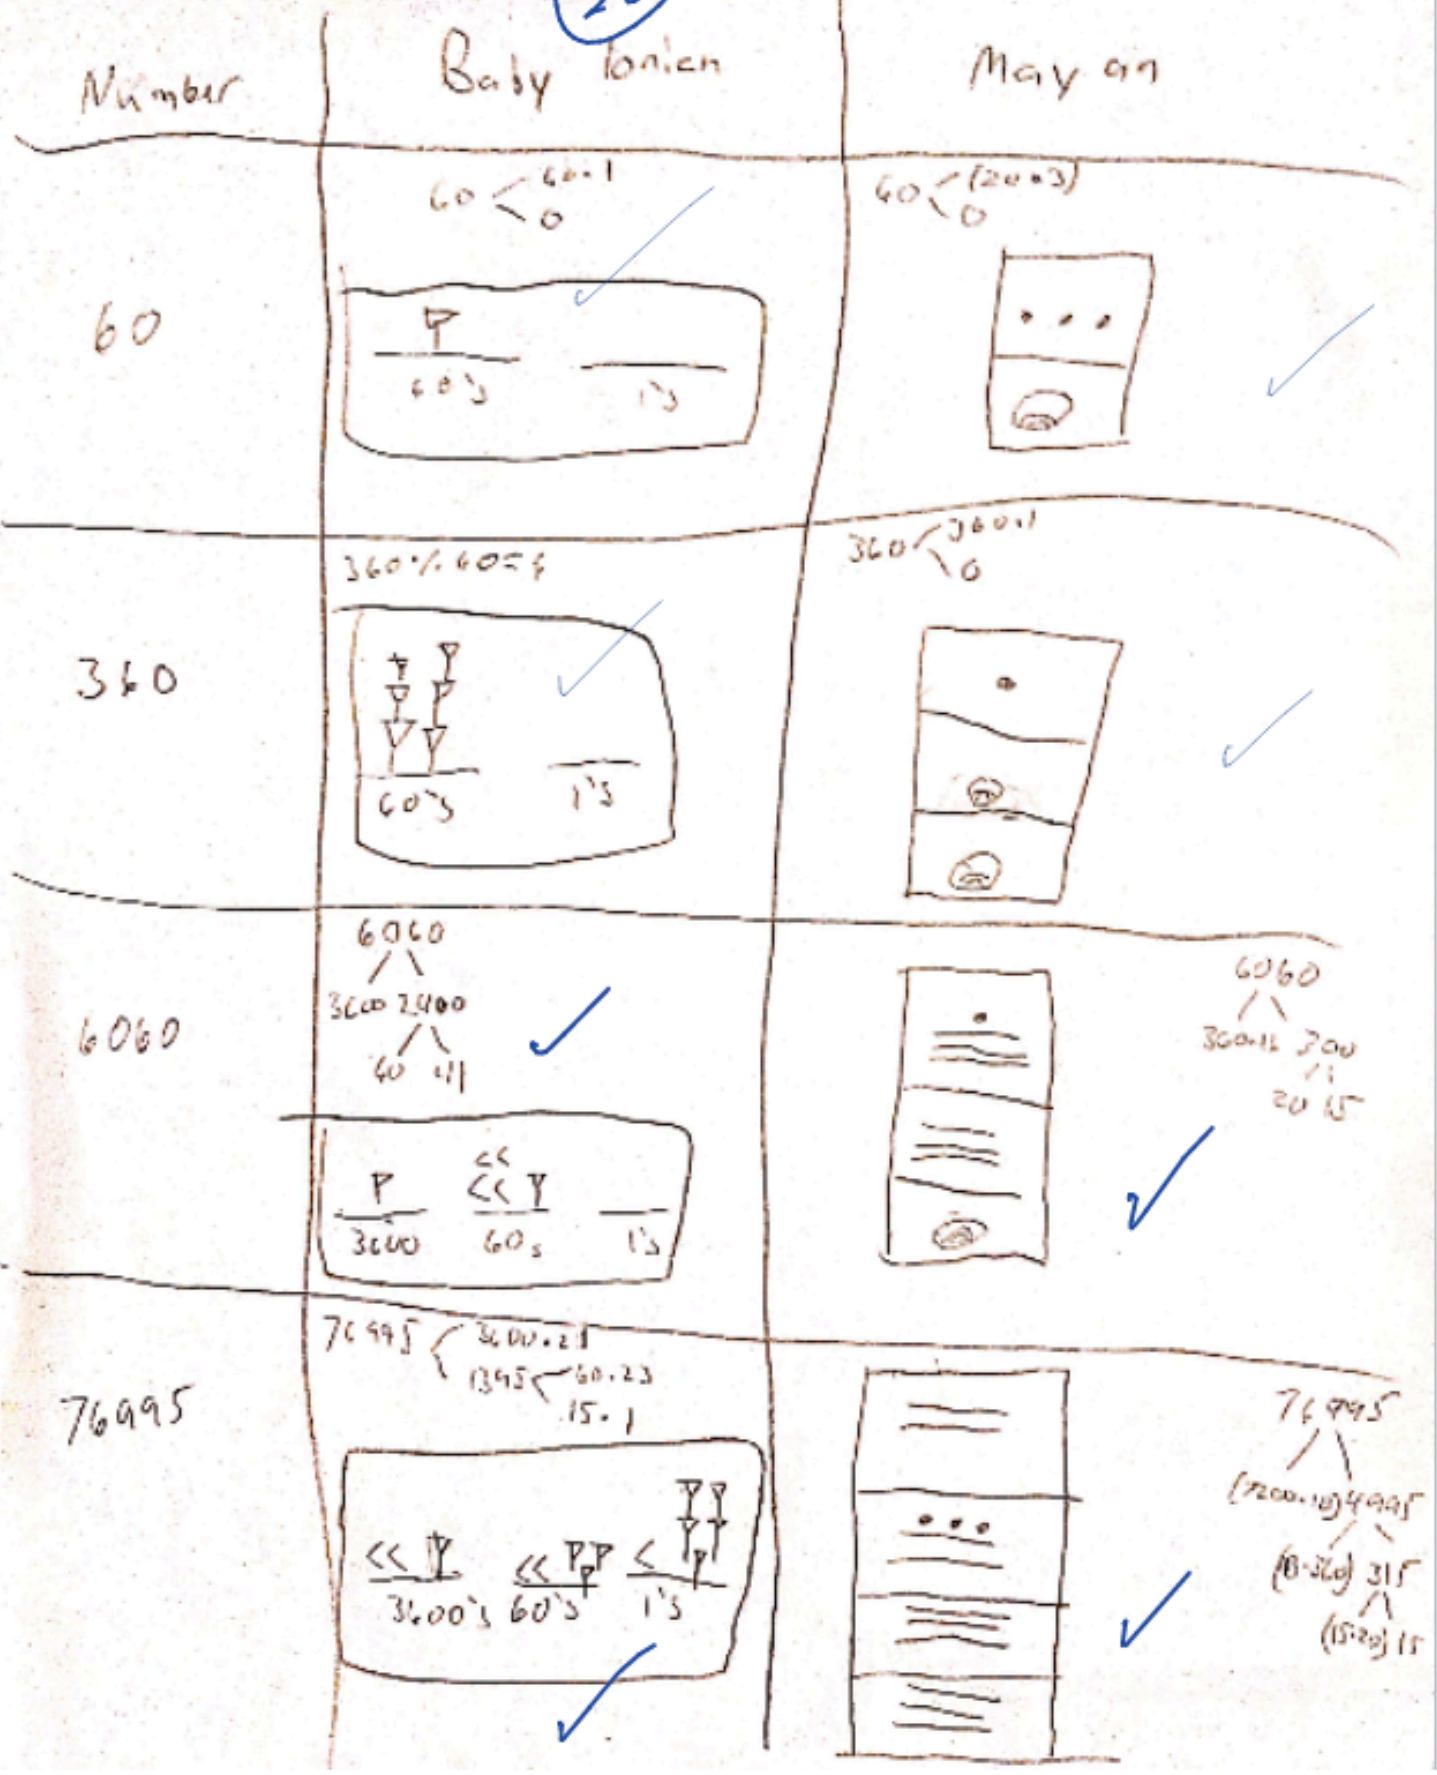 Number Babylonian Mayan
60
60 60·1
0
60's 1's
60 (20·3)
0
360
360 % 60=6
60's 1's
360 360·1
0
6060
6060
3600 2400
60 41
3600 60s 1's
6060
360·16 300
20 15
76995
76995 3600·21
1395 60·23
15·1
3600's 60's 1's
76995
(7200·10) 4995
(13·360) 315
(15·20) 15